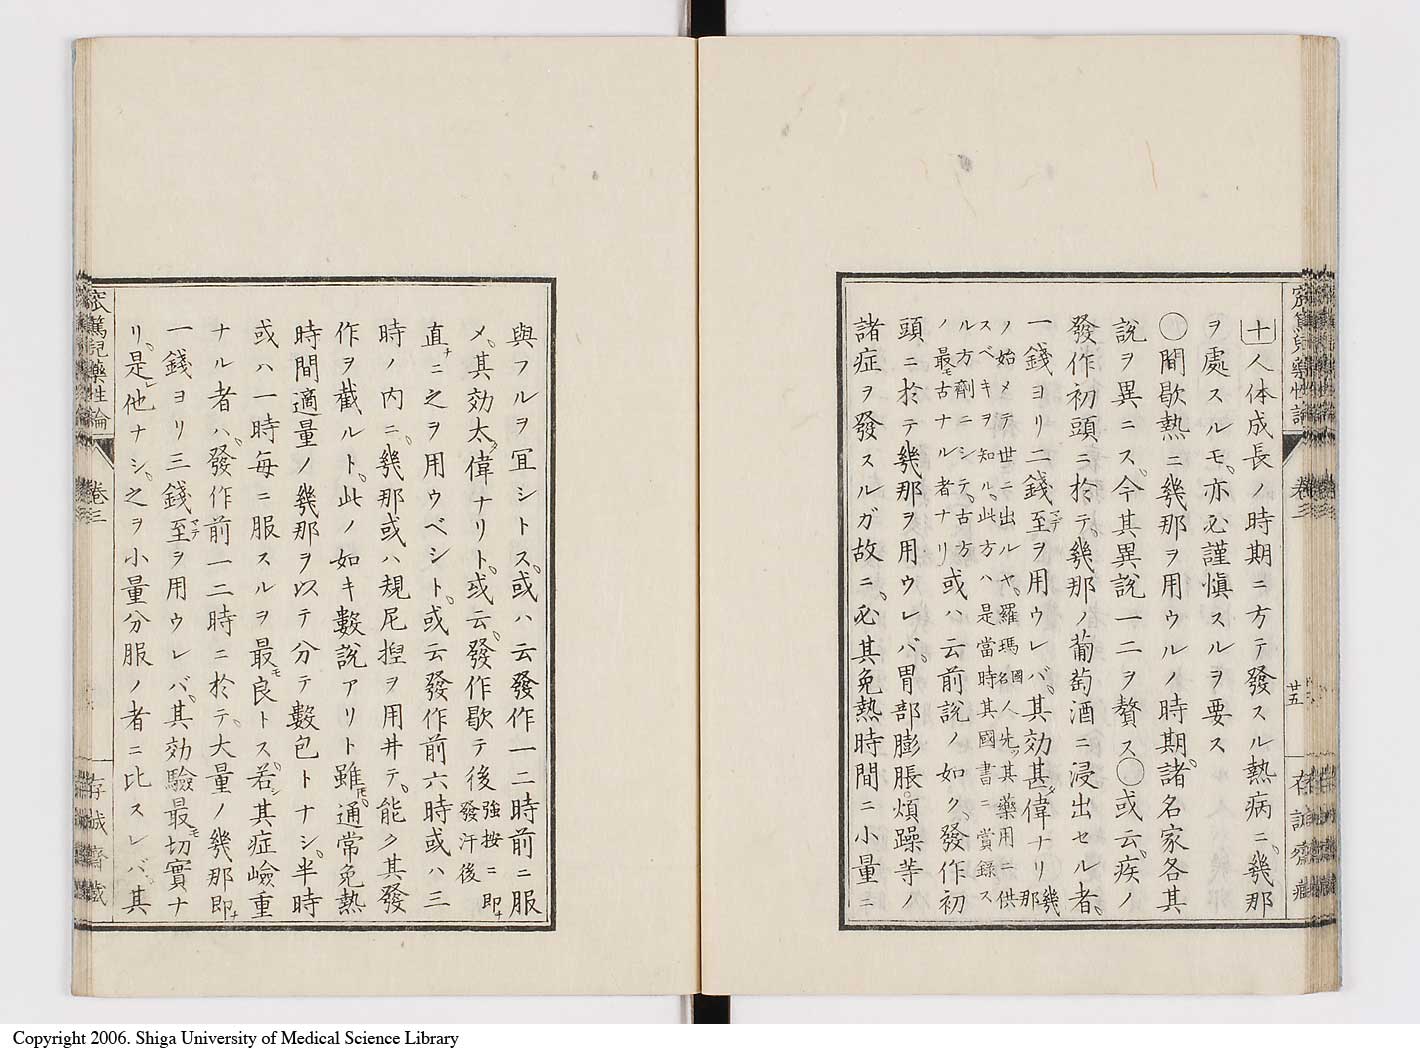 十人体成長ノ時期ニ方テ發スル熱病ニ、幾那
ヲ處スルモ、亦必謹愼スルヲ要ス
〇間歇熱ニ幾那ヲ用ウルノ時期、諸名家各其
説ヲ異ニス、今其異説一二ヲ贅ス〇或云、疾ノ
發作初頭ニ於テ、幾那ノ葡萄酒ニ浸出セル者、
一錢ヨリ二錢至マデヲ用ウレバ、其効甚ダ偉ナリ幾那
ノ始メテ世ニ出ルヤ、羅瑪國名人先ヅ其藥用ニ供
スベキヲ知ル、此方ハ是當時其國書ニ賞録ス
ル方劑ニシテ、古方
ノ最モ古ナル者ナリ或ハ云前説ノ如ク、發作初
頭ニ於テ幾那ヲ用ウレバ、胃部膨脹、煩躁等ノ
諸症ヲ發スルガ故ニ、必其免熱時間ニ小量ニ
宻篤兒藥性論
卷三
廿五
存誠齋藏
與フルヲ宜シトス、或ハ云發作一二時前ニ服
メ、其効太ダ偉ナリト、或云、發作歇テ後強按ニ即ナ
發汗後
直ナニ之ヲ用ウベシト、或云發作前六時或ハ三
時ノ内ニ、幾那或ハ規尼捏ヲ用井テ、能ク其發
作ヲ截ルト、此ノ如キ數説アリト雖モ、通常免熱
時間適量ノ幾那ヲ以テ分テ數包トナシ、半時
或ハ一時毎ニ服スルヲ最モ良トス、若シ其症嶮重
ナル者ハ、發作前一二時ニ於テ、大量ノ幾那即ナ
一錢ヨリ三錢至マデヲ用ウレバ、其効驗最モ切實ナ
リ、是レ他ナシ、之ヲ小量分服ノ者ニ比スレバ、其
宻篤兒藥性論
卷三
存誠齋藏
Copyright 2006. Shiga University of Medical Science Library